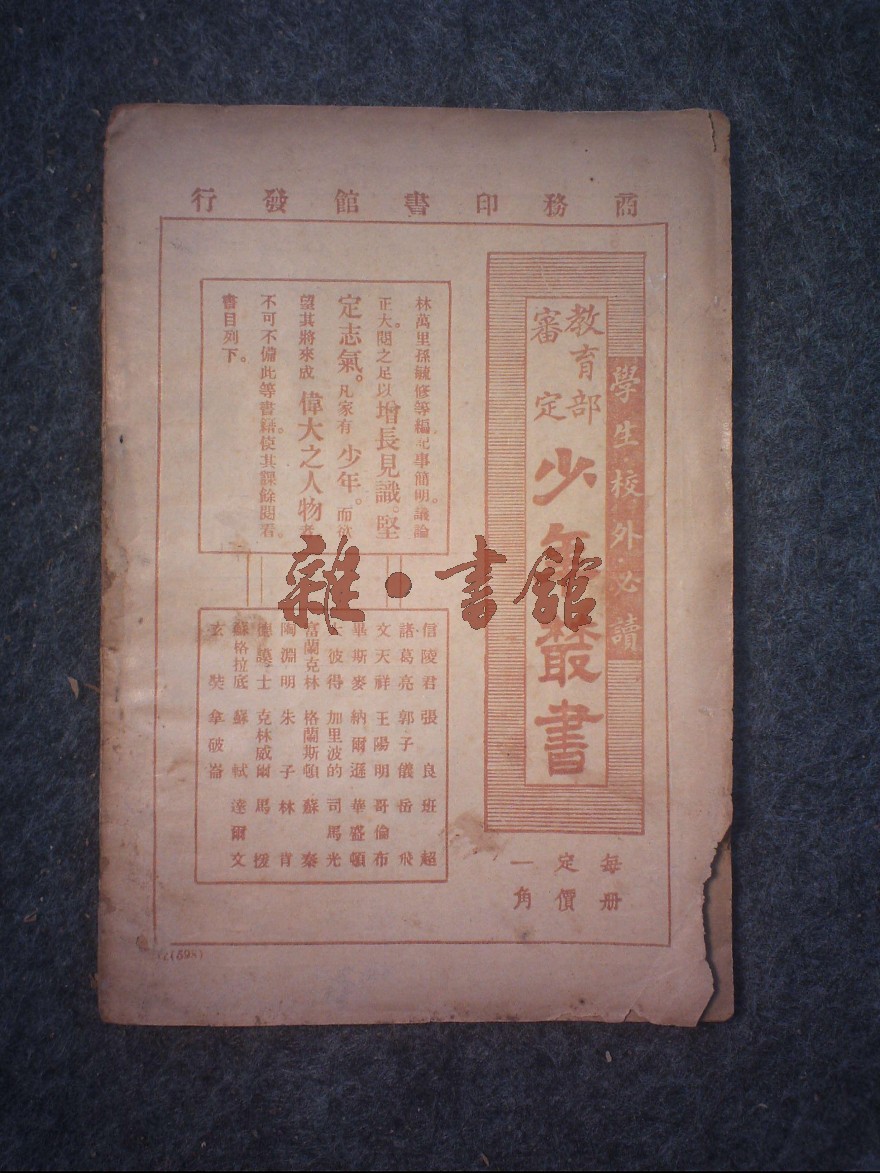 商務印書館發行
學生校外必讀
教育部
審定
少年叢書
每册
定價
一角
林萬里孫毓修等編記事簡明。議論
正大。閱之足以增長見識。堅
定志氣。凡家有少年。而欲
望其將來成偉大之人物者
不可不備此等書籍。使其課餘閱看。
書目列下。
信陵君 張良 班超
諸葛亮 郭子儀 岳飛
文天祥 王陽明 哥倫布
畢斯麥 納爾遜 華盛頓
大彼得 加里波的 司馬光
富蘭克林 格蘭斯頓 蘇秦
陶淵明 朱子 林肯
德謨士 克林威爾 馬援
蘇格拉底 蘇軾 達爾文
玄奘 拿破崙
雜·書館